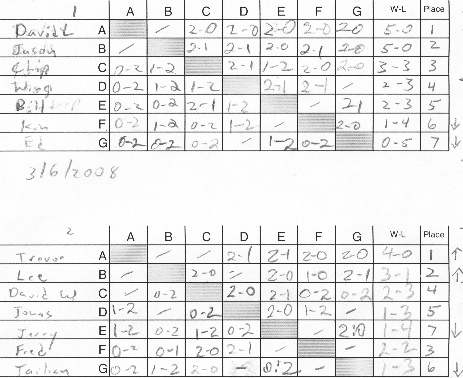 1 A B C D E F G W-L Place
David L A / 2-0 2-0 2-0 2-0 20 5-0 1
Jason B / 2-1 2-1 2-0 2-1 2-0 5-0 2
Chip C 0-2 1-2 2-1 1-2 2-0 2-0 3-3 3
D 0-2 1-2 1-2 2-1 2-1 / 2-3 4
Bill E 0-2 0-2 2-1 1-2 / 21 2-3 5
Ken F 0-2 1-2 0-2 1-2 / 2-0 1-4 6 ↓
Ed G 0-2 0-2 0-2 / 1-2 0-2 0-5 7 ↓
3/6/2008
2 A B C D E F G W-L Place
Trevor A / / 2-1 2-1 2-0 2-0 4-0 1 ↑
Lee B / 2-0 / 2-0 1-0 2-1 3-1 2 ↑
David W C / 0-2 2-0 2-1 0-2 0-2 2-3 4
Jonas D 1-2 / 2-0 1-2 / 1-3 5
Jerry E 1-2 0-2 1-2 0-2 / 2:0 1-4 7 ↓
Fred F 0-2 0-1 2-0 2-1 / / 2-2 3
G 0-2 1-2 2-0 0:2 / 1-3 6 ↓